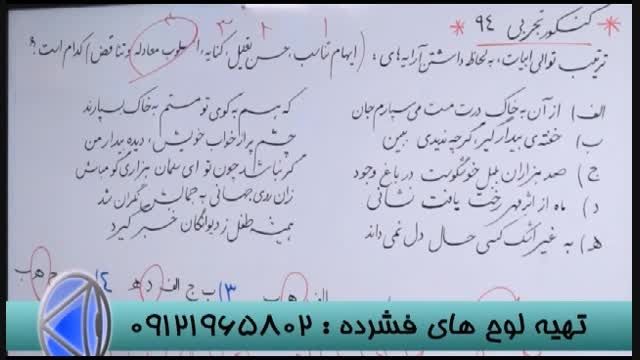 * کنکور تجربی ۹۴ *
۱ ۲ ۳ ۴
ترتیب توالی ابیات، به لحاظ داشتن آرایه های: (ایهام تناسب، حسن تعلیل، کنایه، اسلوب معادله و تناقض) کدام است؟
الف) از آن به خاک درت مست می سپارم جان که هم به کوی تو مستم به خاک بسپارند
ب) خفته ی بیدار گیر، گرچه ندیدی ببین چشم پر از خواب خویش، دیده بیدار من
ج) صد هزاران بلبل خوشگوست در باغ وجود گر نباشد چون تو ای سلمان هزاری گو مباش
د) ماه از اثر مهر رخت یافت نشانی زان روی جهانی به جمالش نگران شد
هـ) به غیر اشک کسی حال دل نمی داند همیشه طفل ز دیوانگان خبر گیرد
الف هـ ب ۳) ب ج الف د هـ ۴) ج هـ ب
تهیه لوح های فشرده : ۰۹۱۲۱۹۶۵۸۰۲